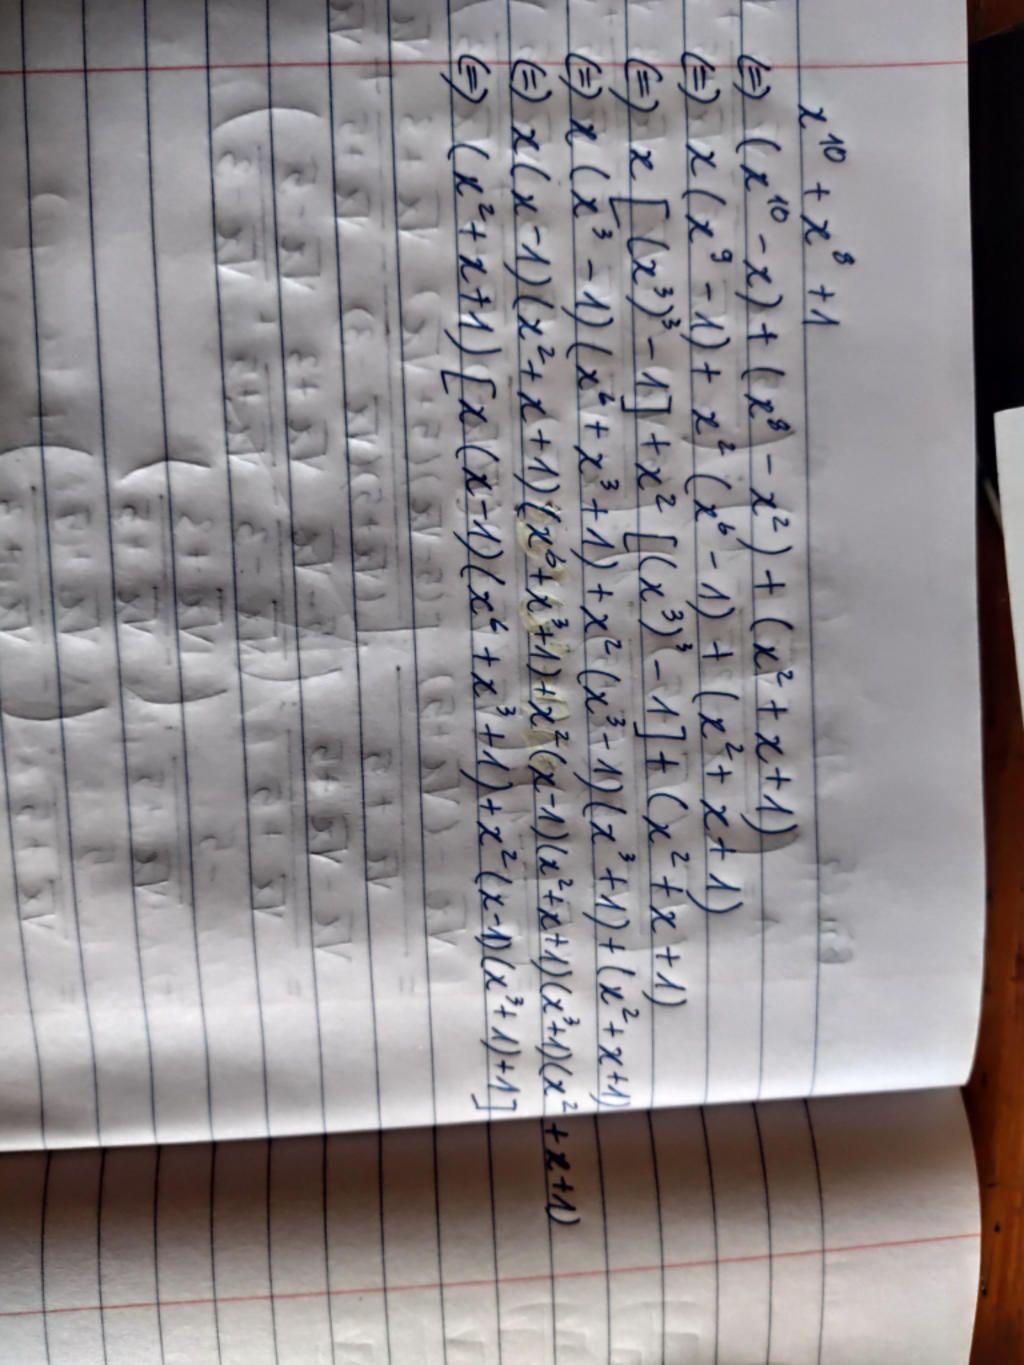 x¹⁰ + x⁸ + 1
(=) (x¹⁰ - x) + (x⁸ - x²) + (x² + x + 1)
(=) x (x⁹ - 1) + x² (x⁶ - 1) + (x² + x + 1)
(=) x [(x³)³ - 1] + x² [(x³)³ - 1] + (x² + x + 1)
(=) x (x³ - 1) (x⁶ + x³ + 1) + x² (x³ - 1) (x³ + 1) + (x² + x + 1)
(=) x (x - 1) (x² + x + 1) (x⁶ + x³ + 1) + x² (x - 1) (x² + x + 1) (x³ + 1) (x² + x + 1)
(=) (x² + x + 1) [x (x - 1) (x⁶ + x³ + 1) + x² (x - 1) (x³ + 1) + 1]